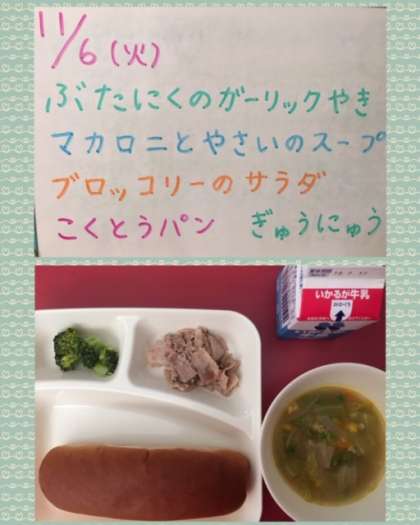 11/6(火)
ぶたにくのガーリックやき
マカロニとやさいのスープ
ブロッコリーのサラダ
こくとうパン ぎゅうにゅう
いかるが牛乳